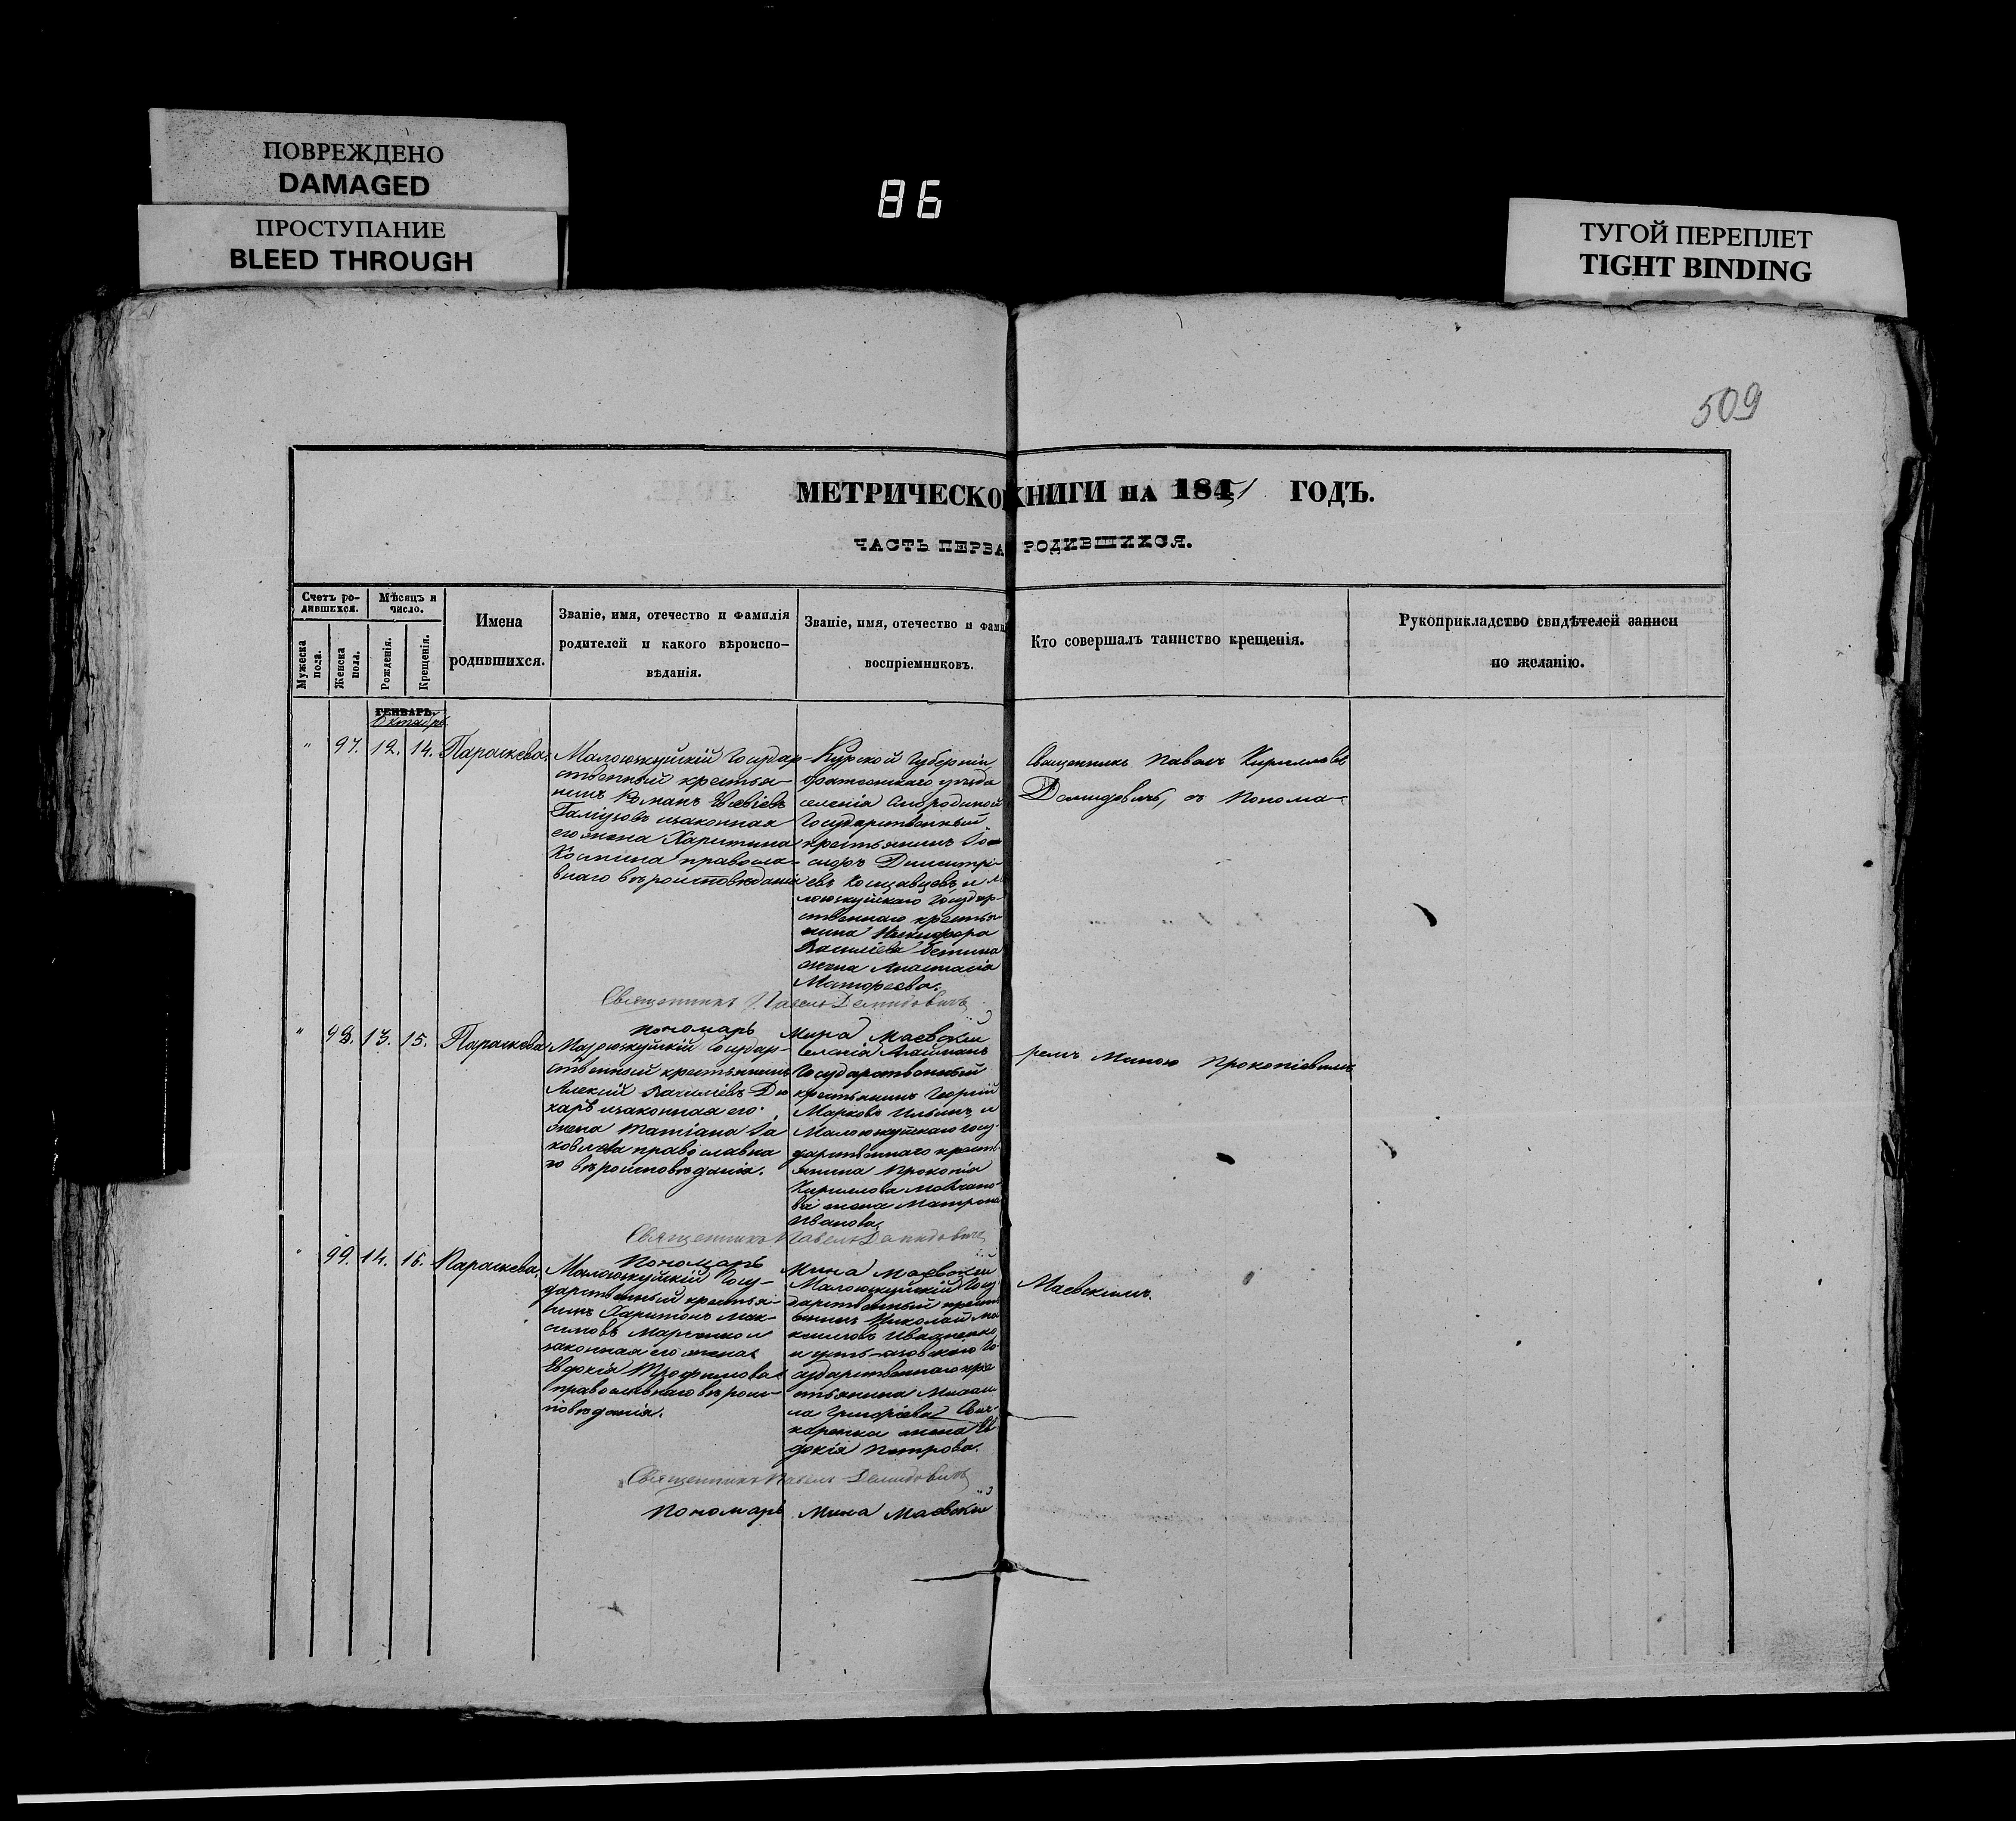 ПОВРЕЖДЕНО
DAMAGED
ПРОСТУПАНИЕ
BLEED THROUGH
86
ТУГОЙ ПЕРЕПЛЕТ
TIGHT BINDING
509
МЕТРИЧЕСКО КНИГИ НА 1851 ГОДЪ.
ЧАСТЬ ПЕРВА РОДИВШИХСЯ.
Счетъ ро-
дившихся.
Мужеска
пола.
Женска
пола.
Мѣсяцъ и
число.
Рожденія.
Крещенія.
Имена
родившихся.
Званіе, имя, отечество и фамилія
родителей и какого вѣроиспо-
вѣданія.
Званіе, имя, отечество и фами
воспріемниковъ.
Кто совершалъ таинство крещенія.
Рукоприкладство свидѣтелей записи
по желанію.
ГЕНВАРЬ.
Октябрь.
" 97. 12. 14. Параскева.
Государ-
ственный крестья-
нинъ Романъ
законная
его жена Харитина
правосла-
внаго вѣроисповѣданія
Курской Губерніи
уѣзда
селенія
Государственный
крестьянинъ
Димитрі-
евъ и
Государ-
ственнаго крестья-
нина Никифора
Василіева
жена Анастасія
Матфеева.
Священникъ Павелъ Кирилловъ
Демидовичъ, съ понома-
Священникъ Павелъ Демидовичъ
Пономарь Мина Маевскій
" 98. 13. 15. Параскева
Государ-
ственный крестьянинъ
Алексій Василіевъ
законная его
жена Татіана Іа
ковлева православна
го вѣроисповѣданія.
селенія
Государственный
крестьянинъ Георгій
Марковъ Ильинъ, и
госу-
дарственнаго кресть
янина Прокопія
Кириллова
жена Матрона
Иванова.
ремъ Миною Прокопіевымъ
Священникъ Павелъ Демидовичъ
Пономарь Мина Маевскій
" 99. 14. 16. Параскева.
Госу-
дарственный крестья-
нинъ Харитонъ Мак-
симовъ и
законная его жена
Евдокія Трофимова
православнаго вѣроис-
повѣданія.
Госу
дарственный кресть
янинъ Николай Ма
ксимовъ
и Го
сударственнаго кре
стьянина Михаи
ла Григоріева
жена Ев
докія Петрова.
Маевскимъ.
Священникъ Павелъ Демидовичъ
Пономарь Мина Маевскій